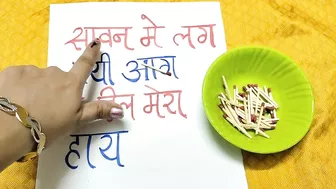 सावन मे लग
आग
मेरा
हाय